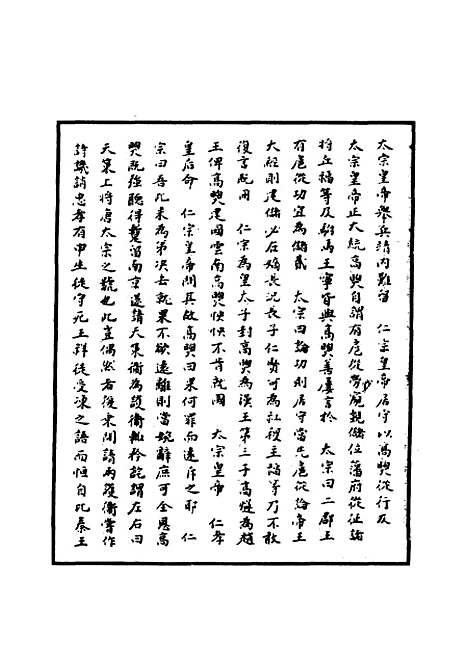 太宗皇帝舉兵靖內難留　仁宗皇帝居守以高煦從行及
太宗皇帝正大統高煦自謂有扈從勞窺覬儲位藩府從征諸
將丘福等及駙馬王寧皆與高煦善屢言於　太宗曰二郡王
有扈從功宜為儲貳　太宗曰論功則居守當先扈從論帝王
大經則建儲必在嫡長況長子仁賢可為社稷主福等乃不敢
復言既冊　仁宗為皇太子封高煦為漢王第三子高燧為趙
王俾高煦建國雲南高煦怏怏不肯就國　太宗皇帝　仁孝
皇后命　仁宗皇帝問其故高煦曰果何罪而遠斥之耶　仁
宗曰吾比未為弟決去就果不欲遠離則當婉辭庶可全恩高
煦既強聽得蹔留南京遂請天策衛為護衛輒矜詫謂左右曰
天策上將唐太宗之號也此豈偶然者後東閒請兩護衛嘗作
詩譏誚忠孝有申生徒守死王祥徒受凍之語而恒自比秦王